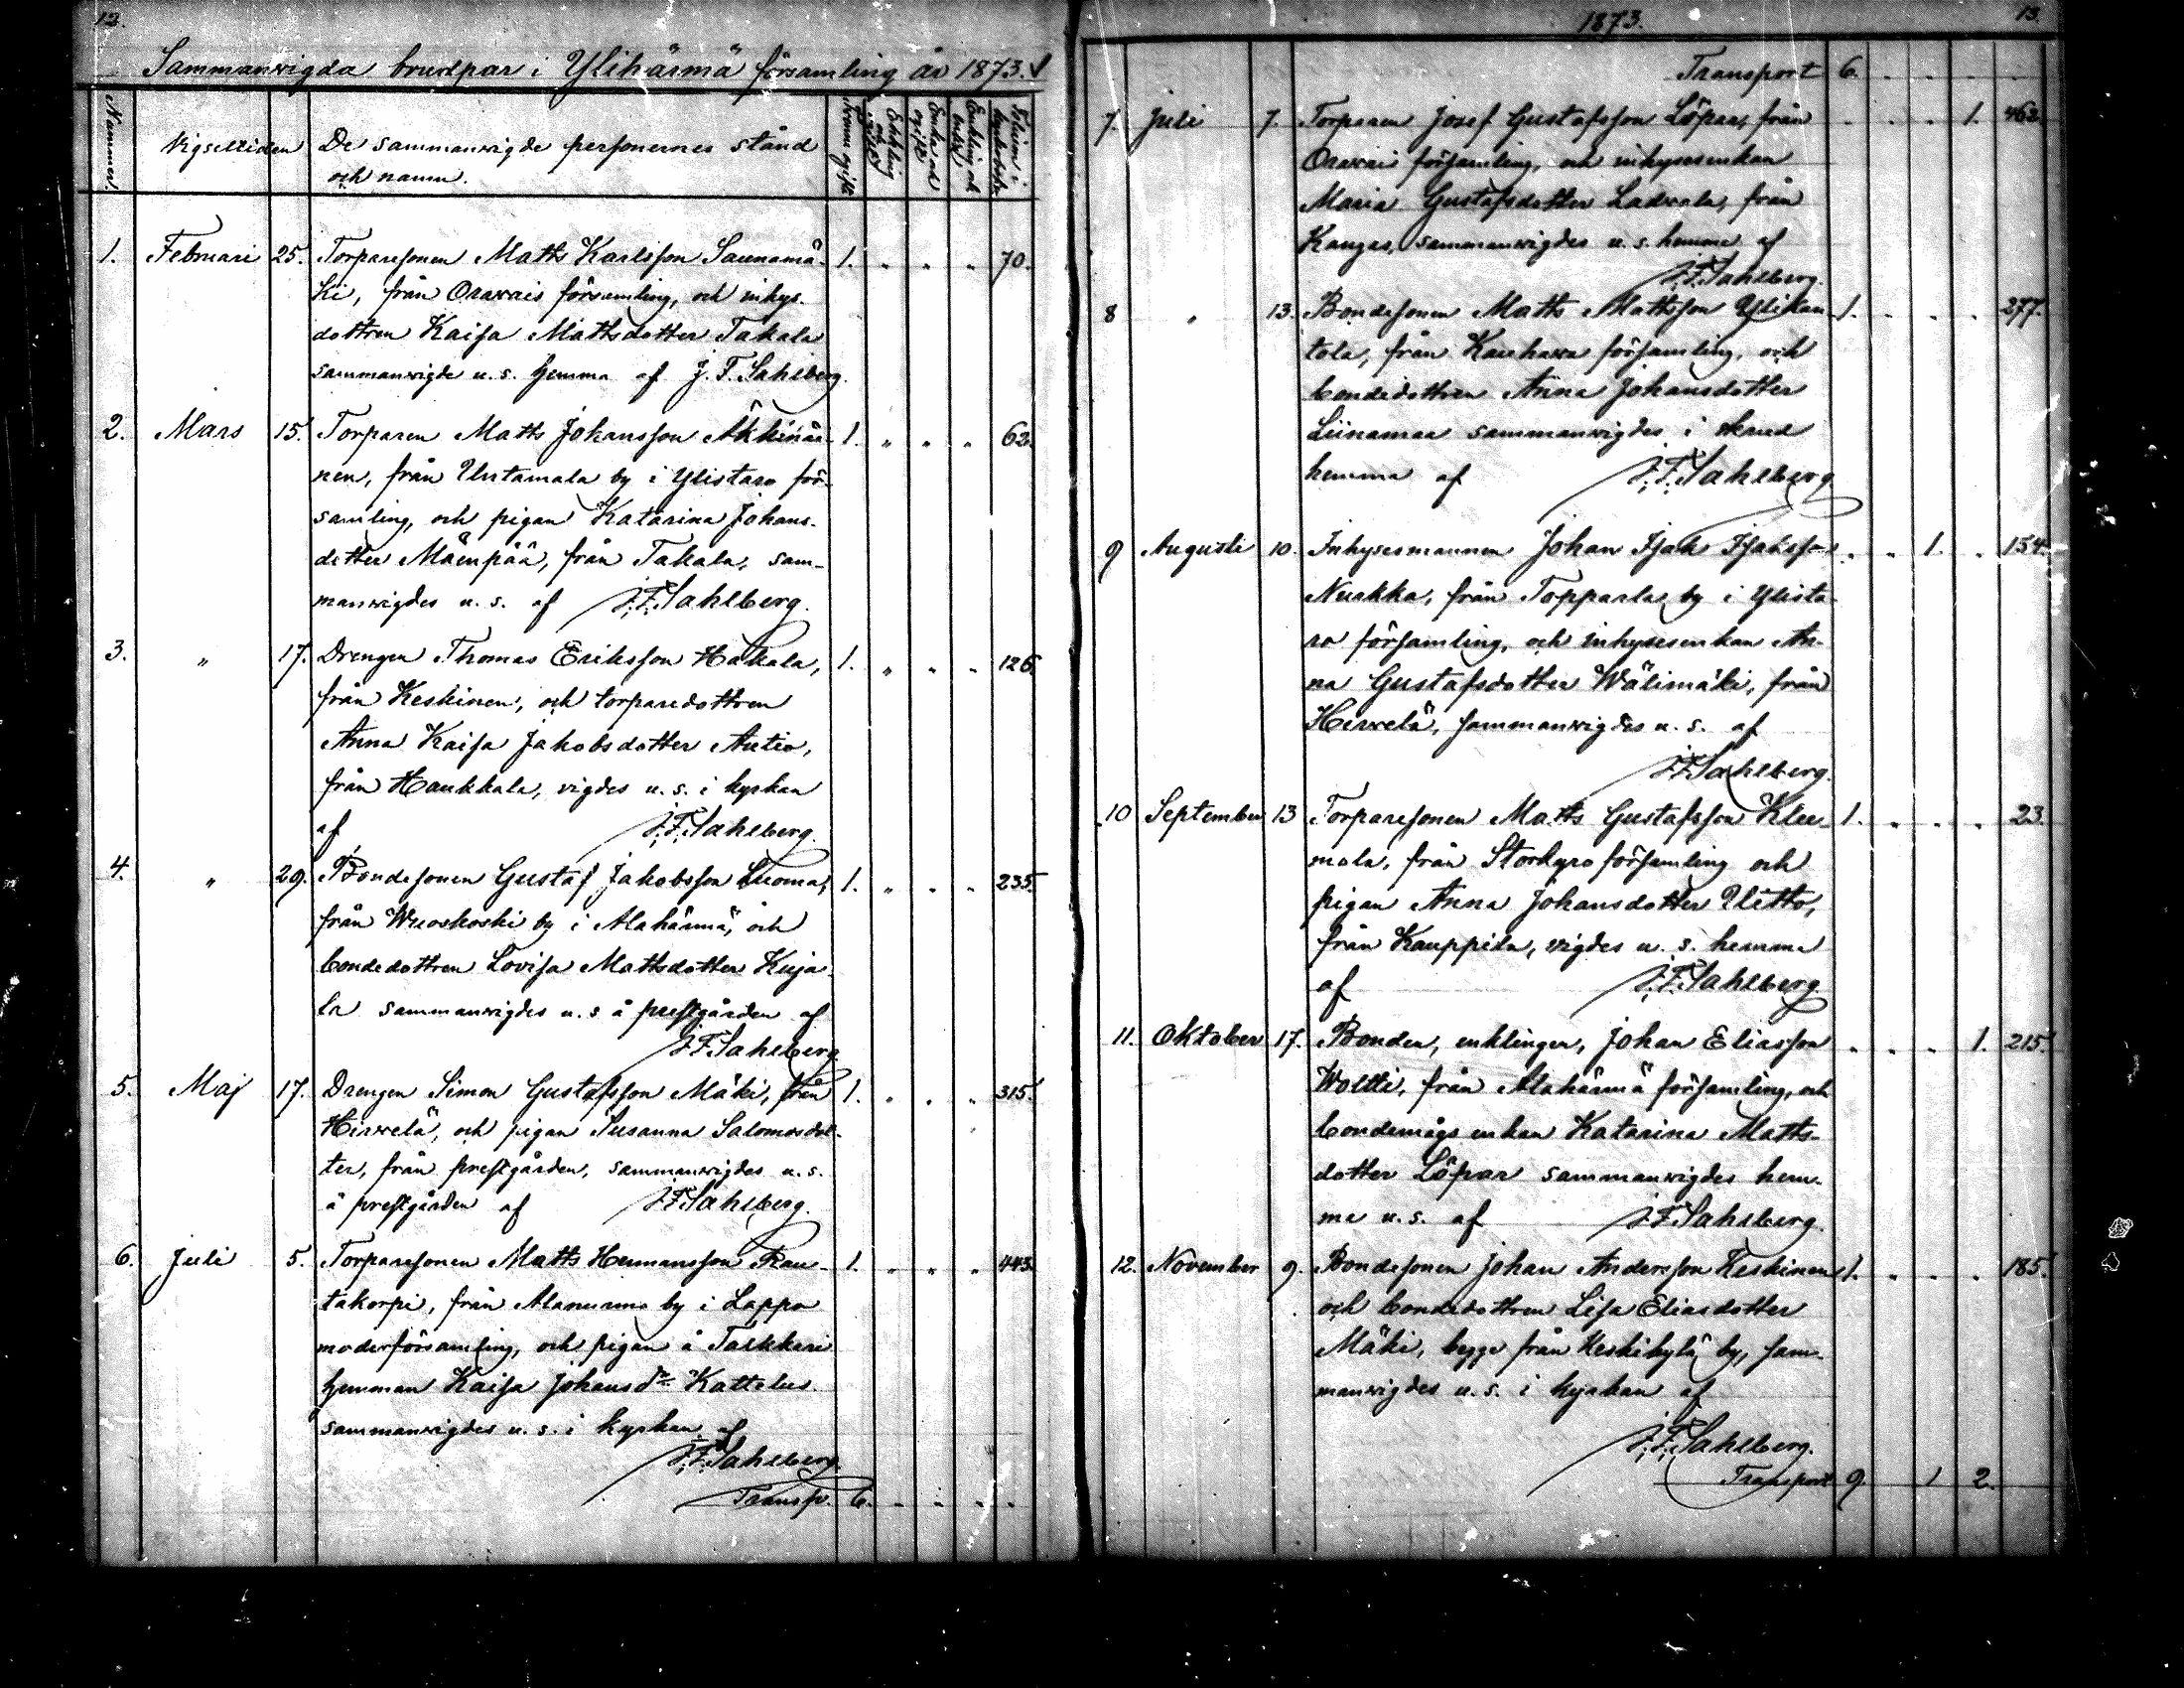 12.
Sammanvigda brudpar i Ylihärmä församling år 1873.
Nummer.
Vigseltiden
De sammanvigde personernes stånd
och namn.
1. Februari 25. Torparesonen Matts Karlsson Saunamä- 1. " " " 70.
ki, från Oravais församling, och inhys.
dottren Kaisa Mattsdotter Takala
sammanvigde u. s. hemma af J. F. Sahlberg.
2. Mars 15. Torparen Matts Johansson Äkkinäi- 1. " " " 62.
nen, från Untamala by i Ylistaro för-
samling, och pigan Katarina Johans-
dotter Mäenpää, från Takala, sam-
manvigdes u. s. af J. F. Sahlberg.
3. " 17. Drengen Thomas Eriksson Hakala, 1. " " " 126.
från Keskinen, och torparedottren
Anna Kaisa Jakobsdotter Autio,
från Haukkala, vigdes u. s. i kyrkan
af J. F. Sahlberg.
4. " 29. Bondesonen Gustaf Jakobsson Luoma, 1. " " " 235.
från Wuoskoski by i Alahärmä, och
bondedottren Lovisa Mattsdotter Kuja-
la sammanvigdes u. s å prestgården af
J. F. Sahlberg
5. Maj 17. Drengen Simon Gustafsson Mäki, från 1. " " " 315.
Hirvelä, och pigan Susanna Salomonsdot-
ter, från prestgården, sammanvigdes u. s.
å prestgården af J. F. Sahlberg.
6. Juli 5. Torparesonen Matts Hermansson Rau- 1. " " " 443.
takorpi, från Alanurmo by i Lappo
moderförsamling, och pigan å Tarkkari
hemman Kaisa Johansdr Kattelus
sammanvigdes u. s. i kyrkan af
J. F. Sahlberg.
Transp. 6. " " " "
1873. 13.
Transport 6. " " " "
7. Juli 7. Torparen Josef Gustafsson Löpar, från " " " 1. 462.
Oravais församling, och inhysesenkan
Maria Gustafsdotter Ladvala, från
Kangas, sammanvigdes u. s. hemma af
J. F. Sahlberg.
8 " 13. Bondesonen Matts Mattsson Ylikan- 1. " " " 277.
tola, från Kauhava församling, och
bondedottren Anna Johansdotter
Liinamaa sammanvigdes i
hemma af J. F. Sahlberg
9 Augusti 10. Inhysesmannen Johan Isak Isaksson " " 1. " 154.
Nuakka, från Topparla by i Ylista-
ro församling, och inhysesenkan An-
na Gustafsdotter Wälimäki, från
Hirvelä, sammanvigdes u. s. af
J. F. Sahlberg.
10 September 13 Torparesonen Matts Gustafsson Klee- 1. " " " 23.
mola, från Storkyro församling och
pigan Anna Johansdotter Ulitto,
från Kauppila, vigdes u. s. hemma
af J. F. Sahlberg
11. Oktober 17. Bonden, enklingen, Johan Eliasson " " " 1. 215.
Woltti, från Alahärmä församling, och
bondemågs enkan Katarina Matts-
dotter Löpar sammanvigdes hem-
ma u. s. af J. F. Sahlberg.
12. November 9. Bondesonen Johan Andersson Keskinen 1. " " " 185.
och bondedottren Lisa Eliasdotter
Mäki, begge från Keskikylä by, sam-
manvigdes u. s. i kyrkan af
J. F. Sahlberg.
Transport 9. 1 2.